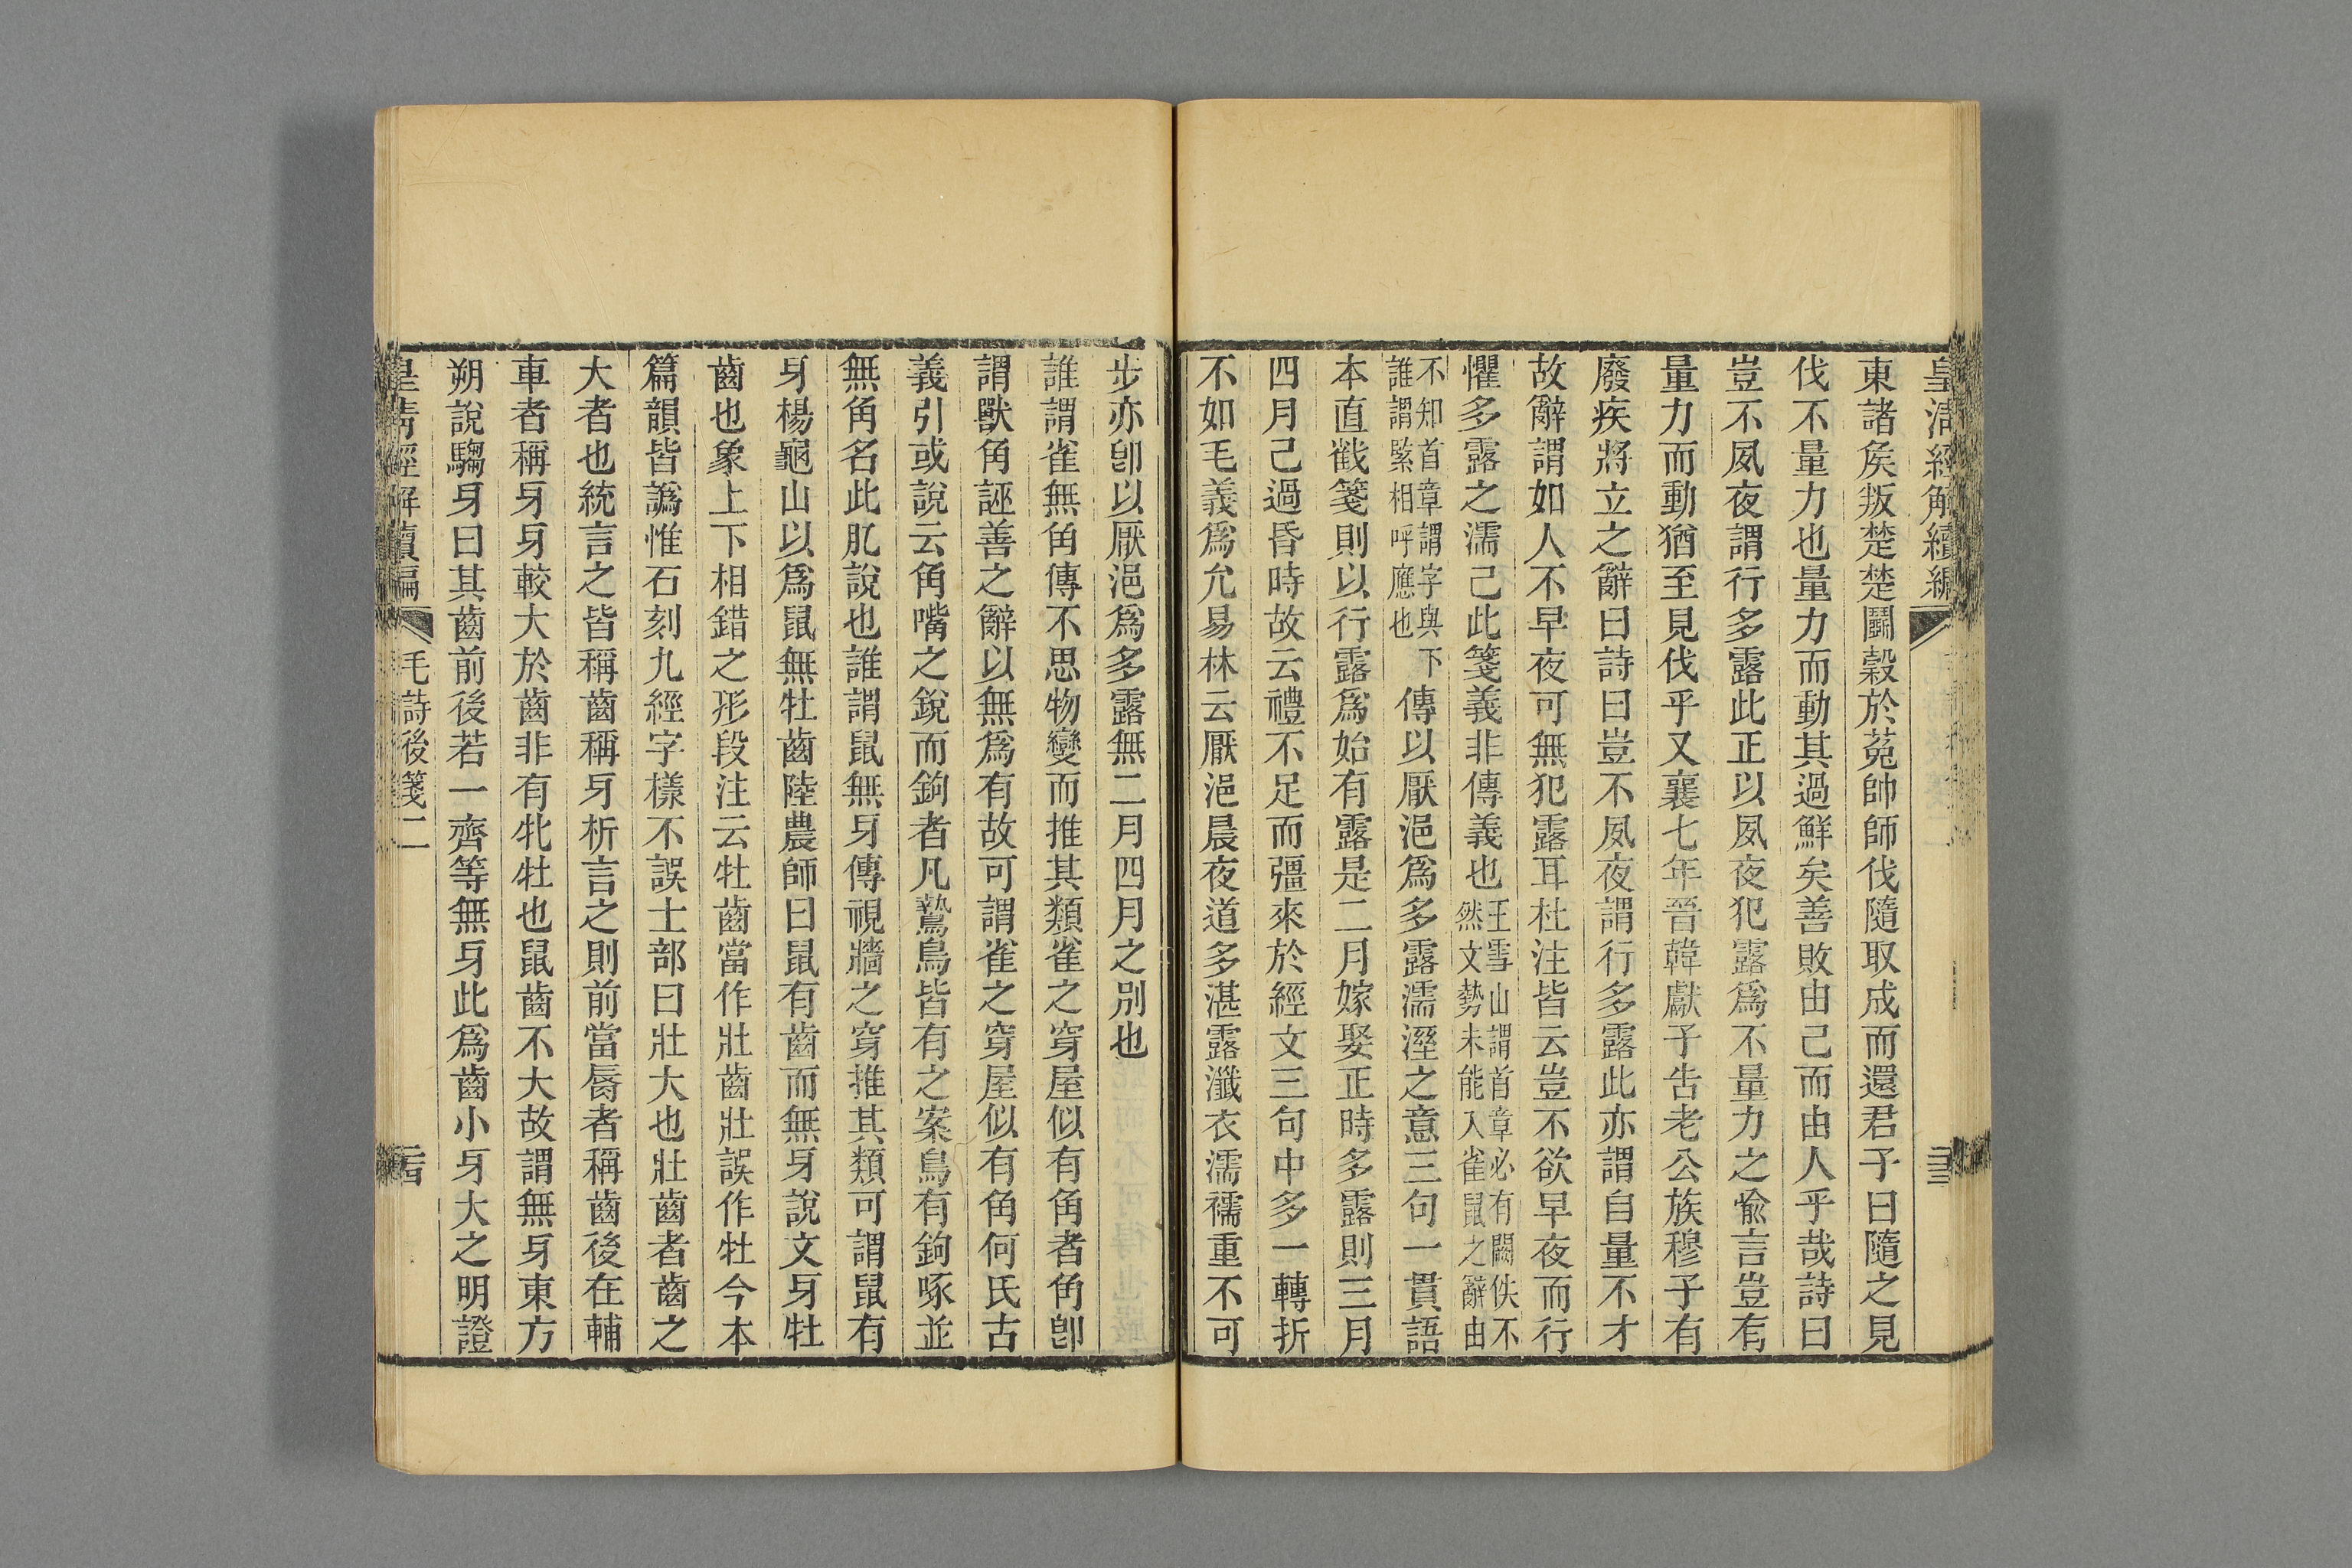 皇淸經解續編
東諸矦叛楚楚鬭穀於菟帥師伐隨取成而還君子曰隨之見
伐不量力也量力而動其過鮮矣善敗由己而由人乎哉詩曰
豈不夙夜謂行多露此正以夙夜犯露爲不量力之喻言豈有
量力而動猶至見伐乎又襄七年晉韓獻子告老公族穆子有
廢疾將立之辭曰詩曰豈不夙夜謂行多露此亦謂自量不才
故辭謂如人不早夜可無犯露耳杜注皆云豈不欲早夜而行
懼多露之濡己此箋義非傳義也王雪山謂首章必有闕佚不
然文勢未能入雀鼠之辭由
不知首章謂字與下
誰謂緊相呼應也傳以厭浥爲多露濡溼之意三句一貫語
本直戳箋則以行露爲始有露是二月嫁娶正時多露則三月
四月己過昏時故云禮不足而彊來於經文三句中多一轉折
不如毛義爲允易林云厭浥晨夜道多湛露瀸衣濡襦重不可
步亦卽以厭浥爲多露無二月四月之別也
誰謂雀無角傳不思物變而推其類雀之穿屋似有角者角卽
謂獸角誣善之辭以無爲有故可謂雀之穿屋似有角何氏古
義引或說云角嘴之銳而鉤者凡鷙鳥皆有之案鳥有鉤啄並
無角名此肊說也誰謂鼠無牙傳視牆之穿推其類可謂鼠有
牙楊龜山以爲鼠無牡齒陸農師曰鼠有齒而無牙說文牙牡
齒也象上下相錯之形段注云牡齒當作壯齒壯誤作牡今本
篇韻皆譌惟石刻九經字樣不誤士部曰壯大也壯齒者齒之
大者也統言之皆稱齒稱牙析言之則前當脣者稱齒後在輔
車者稱牙牙較大於齒非有牝牡也鼠齒不大故謂無牙東方
朔說騶牙曰其齒前後若一齊等無牙此爲齒小牙大之明證
皇淸經解續編　毛詩後箋二